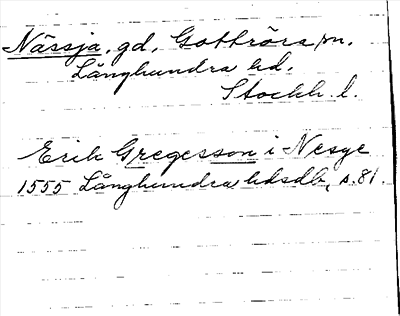 Nässja, gd, Gottröra sn.
Långhundra hd.
Stockh. l.
Erik Gregersson i Nesye
1555 Långhundra hdsdb, s. 81.